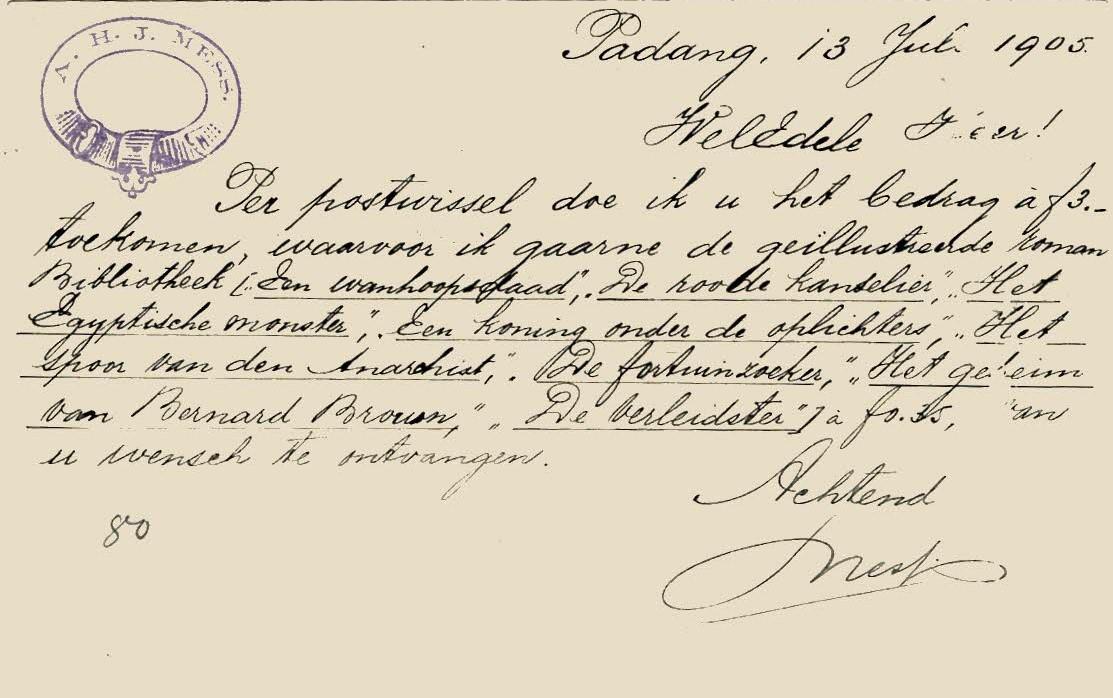 A. H. J. MESS.
Padang, 13 Juli 1905.
WelEdele Heer!
Per postwissel doe ik u het bedrag à f3.-
toekomen, waarvoor ik gaarne de geïllustreerde roman
Bibliotheek [„Een wanhoopsdaad", „De roode kanselier", „Het
Egyptische monster", „Een koning onder de oplichters", „Het
spoor van den Anarchist", „De fortuinzoeker", „Het geheim
van Bernard Brown", „De verleidster"] à f0.35, van
u wensch te ontvangen.
Achtend
Mess
80